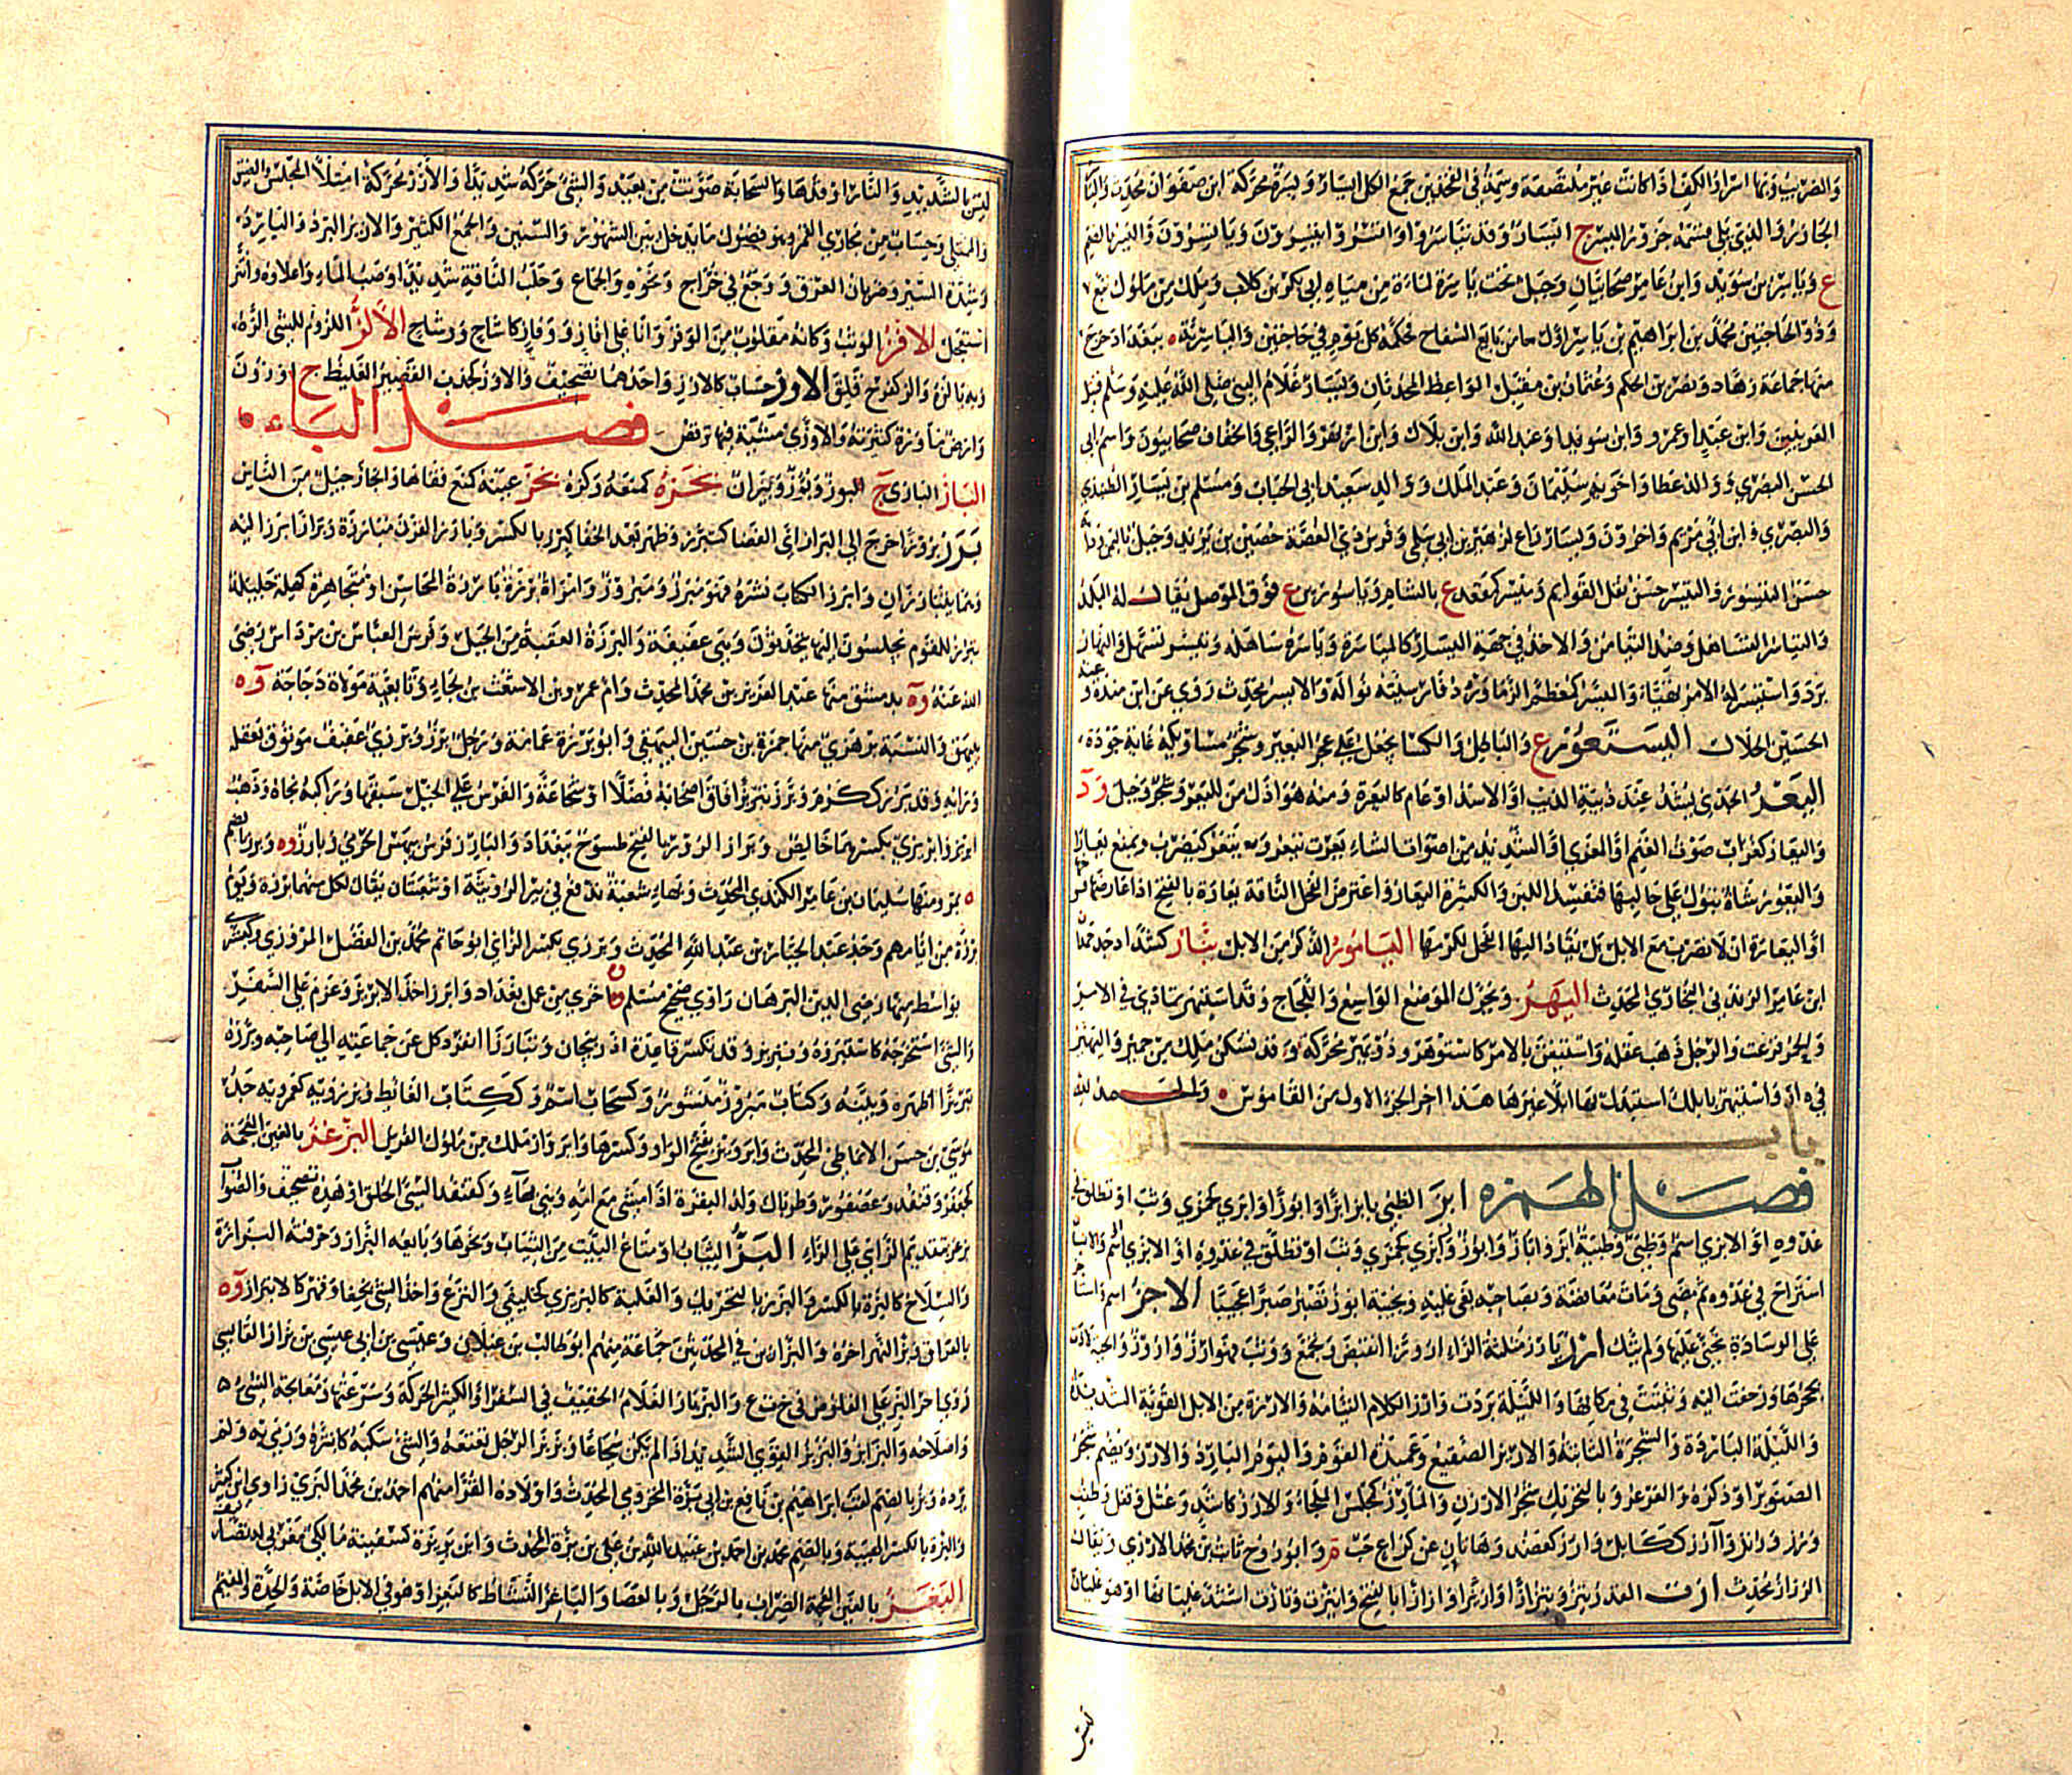 والضريب وما اسرار الكف اذا كانت غير ملتصقة وسمة في الفخذين جمع الكل ايسار ويسرة محركة ابن صفوان محدث والياسر
الجازر والذي يلي قسمة جزور الميسر ج ايسار وقد تياسروا واتسروا يتسرون وياتسرون واليسر بالضم
ع وياسر بن سويد وابن عامر صحابيان وجبل تحت ياسرة لماءة من مياه ابي بكر بن كلاب وملك من ملوك تبع
وذو الحاجبين محمد بن ابراهيم بن ياسر اول من بايع السفاح فحكمه كل يوم في حاجتين والياسرية ه ببغداد خرج
منها جماعة زهاد ونصر بن الحكم وعثمان بن مقبل الواعظ المحدثان ويسار غلام النبي صلى الله عليه وسلم قتيل
العرنيين وابن عبد او عمرو وابن سويد او عبد الله وابن بلال وابن ازيهر والراعي والخفاف صحابيون واسم ابي
الحسن البصري ووالد عطا واخويه سليمان وعبد الملك ووالد سعيد ابي الحباب ومسلم بن يسار الطنبذي
والبصري وابن ابي مريم واخرون ويسار راع لزهير بن ابي سلمى وفرس ذي الغصة حصين بن يزيد وجبل باليمن
حسن التيسور والتيسر حسن نقل القوائم وميسر كمقعد ع بالشام وياسورين ع فوق الموصل يقال له البلد
والتياسر التساهل وضد التيامن والاخذ في جهة اليسار كالمياسرة وياسره ساهله وتيسر تسهل والنهار
برد واستيسر له الامر تهيأ والميسر كمعظم الزماورد فارسيته نواله والايسر محدث روى عن ابن مندة وعنه
الحسين الخلال اليستعور ع والباطل والكساء يجعل على عجز البعير وشجر مساويكه غاية جودة
اليعر الجدي يشد عند زبية الذئب او الاسد او عام كاليعرة ومنه هو اذل من اليعر وشجر وجبل ود
واليعار كغراب صوت الغنم او المعزى او الشديد من اصوات الشاء يعرت تيعر وييعر كيضرب ويمنع يعارا
واليعور شاة تبول على حالبها فتفسد اللبن والكثيرة اليعار واعترض الفحل الناقة يعارة بالفتح اذا عارضها
او اليعارة ان لا تضرب مع الابل بل يقاد اليها الفحل لكرمها اليامور الذكر من الابل يثار كشداد جد حمدان
ابن عامر الزندني البخاري المحدث اليهر ويحرك الموضع الواسع واللجاج وقد استيهر تمادى في الامر
والحمر فزعت والرجل ذهب عقله واستيقن بالامر كاستوهر وذو يهر محركة وقد تسكن ملك من حمير واليهير
في ه ر واستيهر بابلك استبدل بها ابلا غيرها هذا اخر الجزء الاول من القاموس والحمد لله
باب الزاي
فصل الهمزة ابز الظبي يابز ابزا وابوزا وابزى كجمزى وثب او تطلق في
عدوه او الابزى اسم وظبي وظبية ابز وابوز وابزى كجمزى وثب او تطلق في عدوه او الابزى اسم والانسان
استراح في عدوه ثم مضى ومات مغافصة وبصاحبه بغى عليه ونجيبة ابوز تصبر صبرا عجيبا الاجز اسم واستاجز
على الوسادة تحنى عليها ولم يتكئ ارز يارز مثلثة الراء اروزا انقبض وتجمع وثبت فهو ارز واروز والحية لاذت
بجحرها ورجعت اليه وثبتت في مكانها والليلة بردت وارز الكلام التيامه والارزة من الابل القوية الشديدة
والليلة الباردة والشجرة الثابتة والاريز الصقيع وعميد القوم واليوم البارد والارز ويضم شجر
الصنوبر او ذكره او العرعر وبالتحريك شجر الارزن والمارز كمجلس الملجأ والارز كاشد وعتل وقفل وطنب
ورز ورنز وآرز ككابل وارز كعضد وهاتان عن كراع حب م وابو روح ثابت بن محمد الارزي ويقال
الرزي محدث ازت القدر تئز وتؤز ازا وازيزا وازازا بالفتح وائتزت وتازت اشتد غليانها او هو غليان
ليس بالشديد والنار اوقدها والسحابة صوتت من بعيد والشيء حركه شديدا والازز محركة امتلاء المجلس والضيق
والممتلئ وحساب من مجاري القمر وهو فضول ما يدخل بين الشهور والسنين والجمع الكثير والازيز البرد والبارد
وشدة السير وضربان العرق ووجع في خراج ونحوه والجماع وحلب الناقة شديدا وصب الماء واغلاؤه وائتز
استعجل الافز الوثب وكانه مقلوب من الوفز وانا على افاز ووفاز كاشاح ووشاح الالز اللزوم للشيء الزه
وبه يالزه والز كفرح قلق الاوز حساب كالازز واحدهما تصحيف والاوز كخدب القصير الغليظ ج اوزون
وارض مأوزة كثيرته والاوزى مشية فيها ترقص فصل الباء
الباز البازي ج ابوز وبؤوز وبئزان بحزه كمنعه وكزه بخز عينه كمنع فقأها والجاز جيل من الناس
برز بروزا خرج الى البراز اي الفضا كتبرز وظهر بعد الخفا كبرز بالكسر وبارز القرن مبارزة وبرازا برز اليه
وهما يتبارزان وابرز الكتاب نشره فهو مبرز ومبروز وامراة برزة بارزة المحاسن او متجاهرة كهلة جليلة
تبرز للقوم يجلسون اليها يتحدثون وهي عفيفة والبرزة العقبة من الجبل وفرس العباس بن مرداس رضي
الله عنه وه بدمشق منها عبد العزيز بن محمد المحدث وام عمرو بن الاشعث بن لجاء وتابعية مولاة دجاجة وه
ببيهق والنسبة برزهي منها حمزة بن حسين البيهقي وابو برزة جماعة ورجل برز وبرزي عفيف موثوق بعقله
ورايه وقد برز ككرم وبرز تبريزا فاق اصحابه فضلا او شجاعة والفرس على الخيل سبقها وراكبه نجاه وذهب
ابريز وابريزي بكسرهما خالص وبراز الروز بالفتح طسوج ببغداد والبارز فرس بيهس الجرمي وبارز وه وبرز بالضم
ه بمرو منها سليمان بن عامر الكندي المحدث وبهاء شعبة تدفع في بير الرويثة او شعبتان يقال لكل منهما برزة ويوم
برزة من ايامهم وجد عبد الجبار بن عبد الله المحدث وبرزى بكسر الزاي ابو حاتم محمد بن الفضل المروزي وكبشرى
بواسط منها رضي الدين البرهان راوي صحيح مسلم واخرى من عمل بغداد وابرز اخذ الابريز وعزم على السفر
والشيء استخرجه كاستبرزه وتبريز وقد تكسر قاعدة اذربيجان وتبارزا انفرد كل عن جماعته الى صاحبه وبرزه
تبريزا اظهره وبينه وكتاب مبروز منشور وكسحاب اسم وككتاب الغائط وبرزويه كعمرويه جد
موسى بن حسن الانماطي المحدث وابرويز بفتح الواو وكسرها وابرواز ملك من ملوك الفرس البرغز بالغين المعجمة
كجعفر وقنفذ وعصفور وطربال ولد البقرة اذا مشى مع امه وهي بهاء وكقنفذ السيئ الخلق او هذه تصحيف والصواب
بزغر بتقديم الزاي على الراء البز الثياب او متاع البيت من الثياب ونحوها وبائعه البزاز وحرفته البزازة
والسلاح كالبزة بالكسر والبزز بالتحريك والغلبة كالبزيزى كخليفى والنزع واخذ الشيء بجفاء وقهر كالابتزاز وه
بالعراق وبز النهر اخره والبزازون في المحدثين جماعة منهم ابو طالب بن غيلان وعيسى بن ابي عيسى بن بزاز القابسي
روى اخر البز على القلوص في خ ت ع والبزباز الغلام الخفيف في السفر او الكثير الحركة وسرعتها ومعالجة الشيء
واصلاحه والبزابز والبزبز القوي الشديد اذا لم يكن شجاعا وبزبز الرجل تعتعه والشيء سلبه كابتزه ورمى به ولم
يرده وبز بالضم لقب ابراهيم بن نافع بن ابي بزة المخزومي المحدث واولاده القرا منهم احمد بن محمد البزي راوي ابن كثير
والبزة بالكسر الهيئة وبالضم محمد بن احمد بن عبيد الله بن علي بن بزة المحدث وابن بزيزة كسفينة مالكي مغربي له تصانيف
البغز بالغين المعجمة الضرب بالرجل وبالعصا والباغز النشاط كالبغز او هو في الابل خاصة والحدة والمقيم
تيس